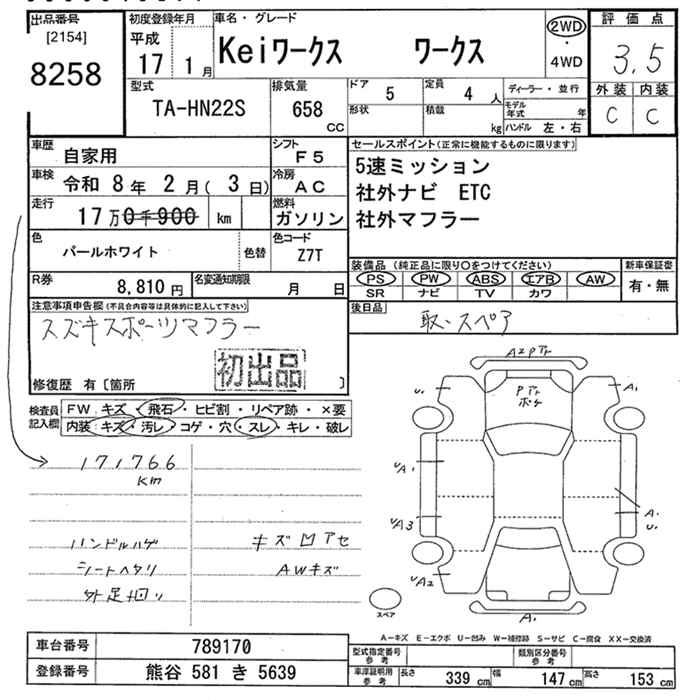 出品番号
[2154]
8258
初度登録年月
平成
17 1月
車名・グレード
Keiワークス ワークス
2WD
・
4WD
評価点
3.5
外装 内装
C C
型式
TA-HN22S
排気量
658
CC
ドア 5
形状
定員 4 人
積載 kg
ディーラー・並行
モデル年式 年
ハンドル 左・右
車歴 自家用
シフト F5
車検 令和 8年 2月( 3日)
冷房 AC
走行 17万0千900 km
燃料 ガソリン
色 パールホワイト 色替
色コード Z7T
R券 8,810円
名変通知期限 月 日
セールスポイント(正常に機能するものに限ります)
5速ミッション
社外ナビ ETC
社外マフラー
装備品 (純正品に限り○をつけてください)
PS PW ABS エアB AW
SR ナビ TV カワ
新車保証書
有・無
後日品
取、スペア
注意事項申告欄(不具合内容等は具体的に記入して下さい)
スズキスポーツマフラー
初出品
修復歴 有〔箇所 〕
検査員記入欄
FW. キズ・飛石・ヒビ割・リペア跡・×要
内装:キズ・汚レ・コゲ・穴・スレ・キレ・破レ
171,766
km
ハンドルハゲ キズ凹アセ
シートヘタリ AWキズ
外足廻り
A2PTr
U1
PTr
ボケ
A1
UA1
A1
U1
UA3
UA2
スペア
A1
A−キズ E−エクボ U−凹み W−補修跡 S−サビ C−腐食 XX−交換済
車台番号 789170
登録番号 熊谷 581 き 5639
型式指定番号
参考
類別区分番号
参考
車庫証明用
参考
長さ 339 cm 幅 147 cm 高さ 153 cm